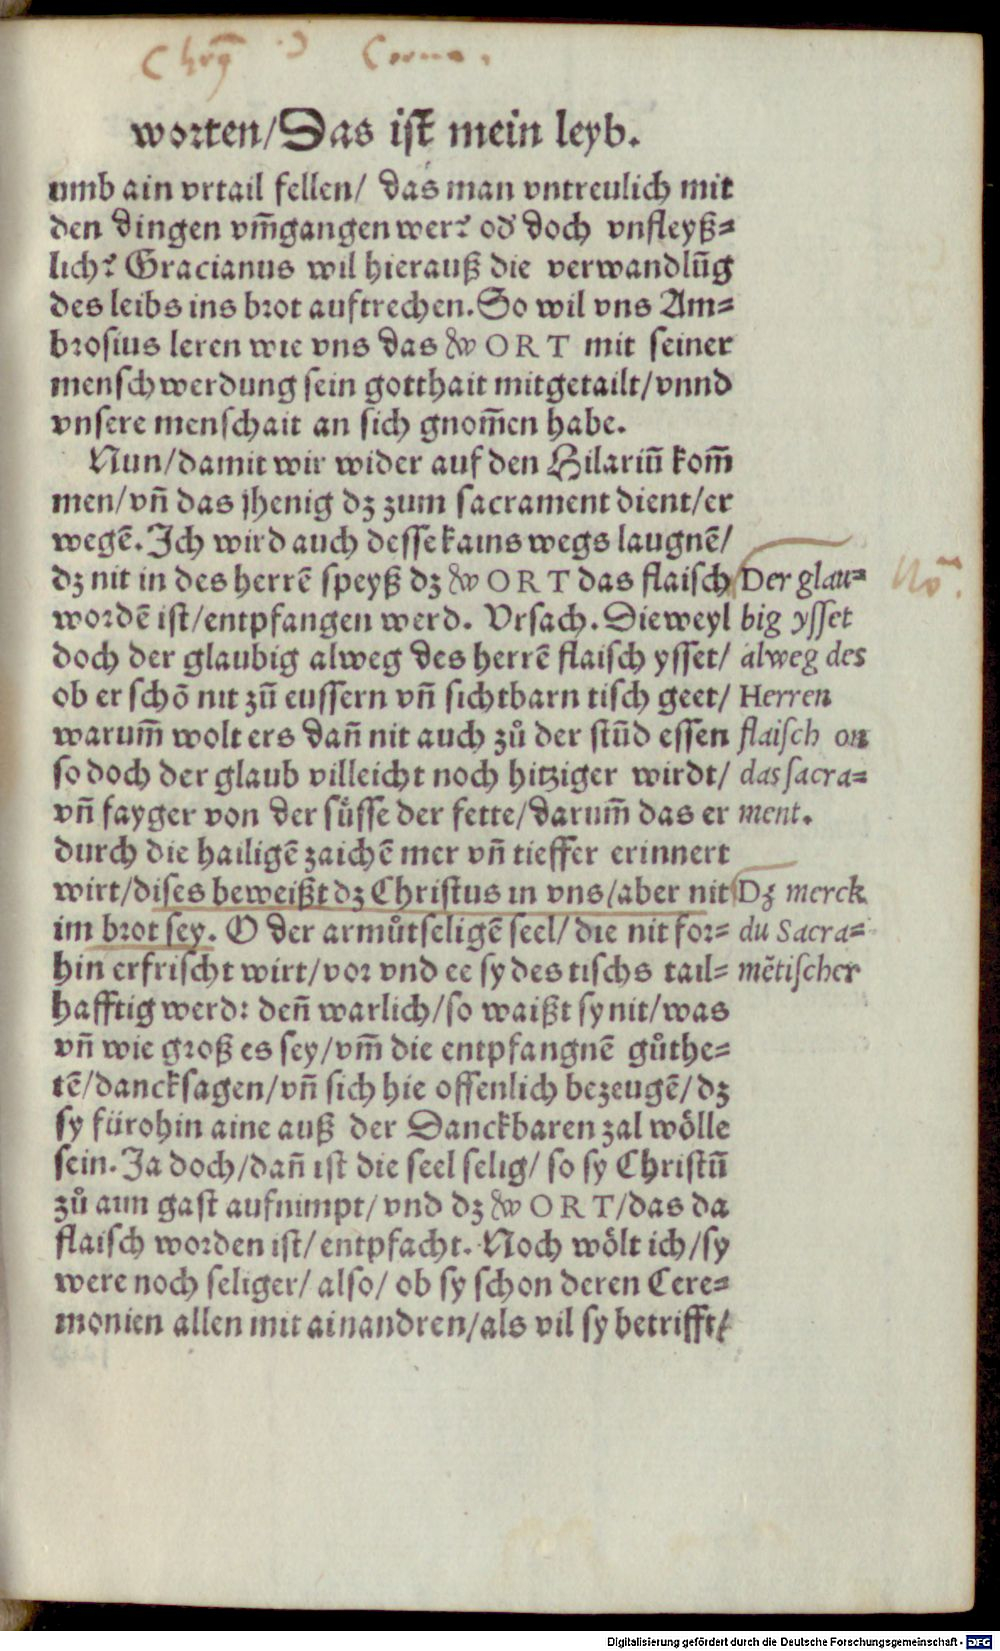 worten/Das ist mein leyb.
umb ain vrtail fellen/ das man vntreulich mit
den dingen vm̄gangen wer? od' doch vnfleyß=
lich? Gracianus wil hierauß die verwandlūg
des leibs ins brot auftrechen. So wil vns Am=
brosius leren wie vns das WORT mit seiner
menschwerdung sein gotthait mitgetailt/vnnd
vnsere menschait an sich gnom̄en habe.
Nun/damit wir wider auf den Hilariū kom̄
men/vn̄ das jhenig dz zum sacrament dient/er
wegē. Ich wird auch desse kains wegs laugnē/
dz nit in des herrē speyß dz WORT das flaisch
wordē ist/entpfangen werd. Vrsach. Dieweyl
doch der glaubig alweg des herrē flaisch ysset/
ob er schō nit zū eussern vn̄ sichtbarn tisch geet/
warum̄ wolt ers dan̄ nit auch zů der stūd essen
so doch der glaub villeicht noch hitziger wirdt/
vn̄ fayger von der süsse der fette/darum̄ das er
durch die hailigē zaichē mer vn̄ tieffer erinnert
wirt/dises beweißt dz Christus in vns/aber nit
im brot sey. O der armůtseligē seel/ die nit for=
hin erfrischt wirt/vor vnd ee sy des tischs tail=
hafftig werd: den̄ warlich/so waißt sy nit/was
vn̄ wie groß es sey/vm̄ die entpfangnē gůthe=
tē/dancksagen/vn̄ sich hie offenlich bezeugē/dz
sy fürohin aine auß der Danckbaren zal wölle
sein. Ja doch/dan̄ ist die seel selig/ so sy Christū
zů ain gast aufnimpt/ vnd dz WORT/das da
flaisch worden ist/ entpfacht. Noch wölt ich/sy
were noch seliger/ also/ ob sy schon deren Cere=
monien allen mit ainandren/als vil sy betrifft/
Der glau=
big ysset
alweg des
Herren
flaisch on
das sacra=
ment.
Dz merck
du Sacra=
mētischer
Digitalisierung gefördert durch die Deutsche Forschungsgemeinschaft - DFG